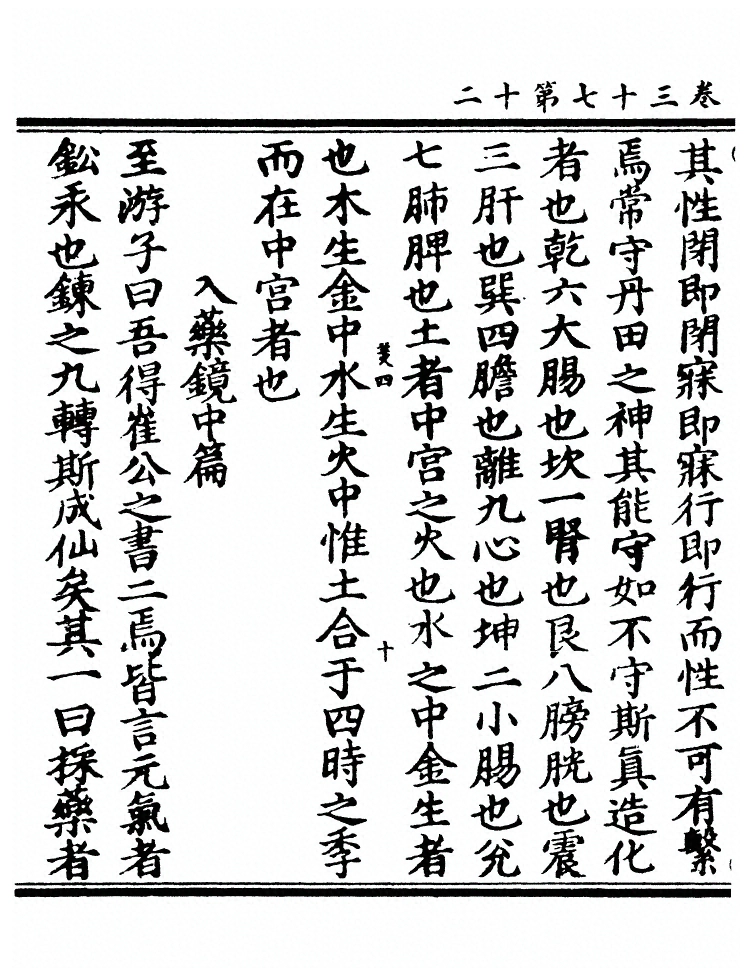 卷三十七第十二
其性閉即閉寐即寐行即行而性不可有繫
焉常守丹田之神其能守如不守斯眞造化
者也乾六大腸也坎一腎也艮八膀胱也震
三肝也巽四膽也離九心也坤二小腸也兊
七肺脾也土者中宮之火也水之中金生者
美四 十
也木生金中水生火中惟土合于四時之季
而在中宮者也
入藥鏡中篇
至游子曰吾得崔公之書二焉皆言元氣者
鈆汞也鍊之九轉斯成仙矣其一曰採藥者